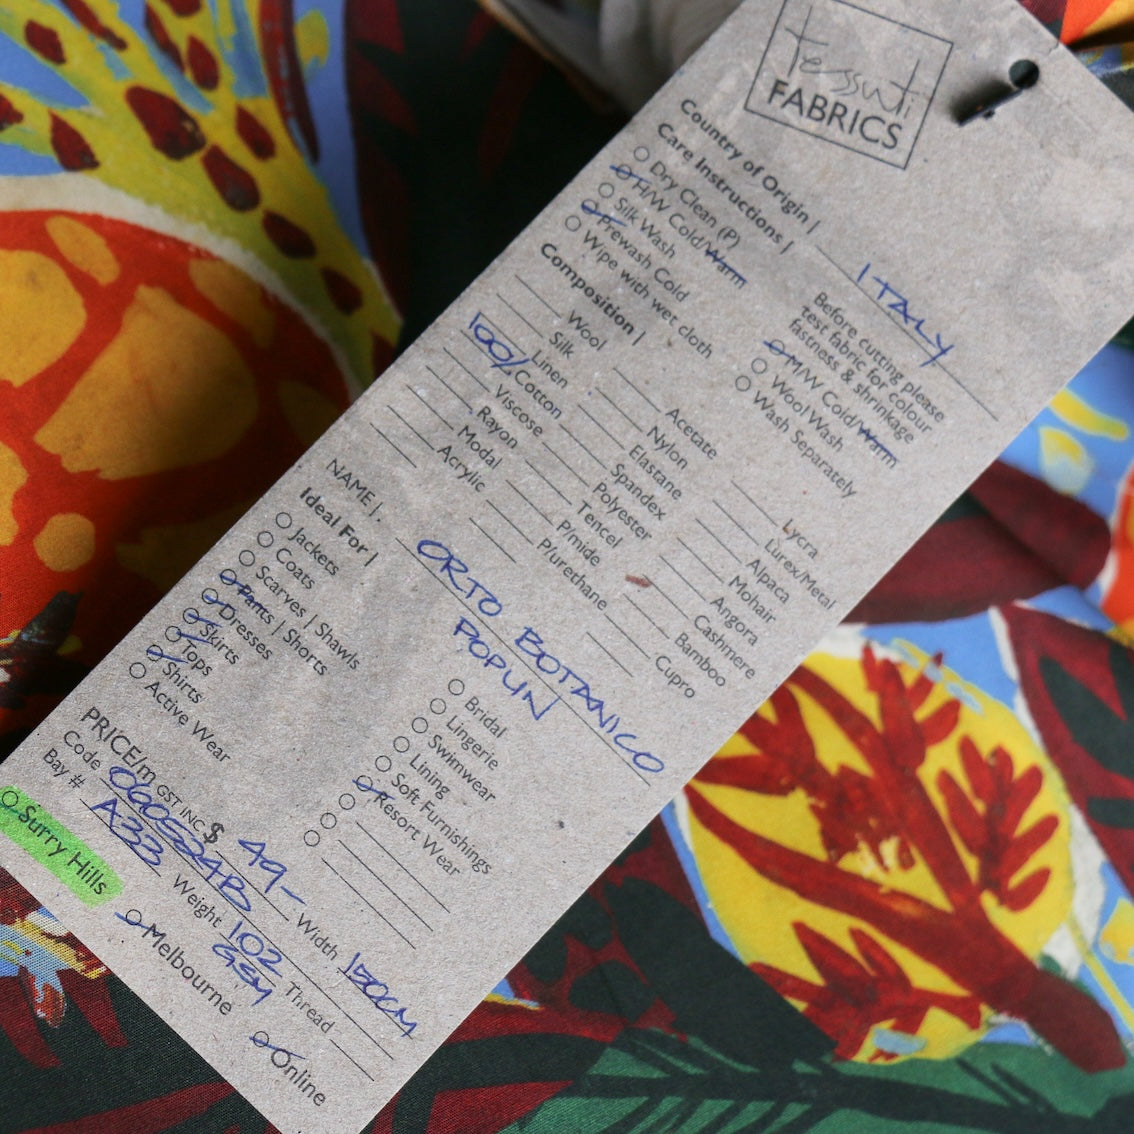 tessuti
FABRICS
Country of Origin | ITALY
Care Instructions |
Dry Clean (P)
H/W Cold/Warm
Silk Wash
Prewash Cold
Wipe with wet cloth
Before cutting please
test fabric for colour
fastness & shrinkage
M/W Cold/Warm
Wool Wash
Wash Separately
Composition |
Wool
Silk
Linen
100/ Cotton
Viscose
Rayon
Modal
Acrylic
Acetate
Nylon
Elastane
Spandex
Polyester
Tencel
P/mide
P/urethane
Lycra
Lurex/Metal
Alpaca
Mohair
Angora
Cashmere
Bamboo
Cupro
NAME | ORTO BOTANICO
POPLIN
Ideal For |
Jackets
Coats
Scarves | Shawls
Pants | Shorts
Dresses
Skirts
Tops
Shirts
Active Wear
Bridal
Lingerie
Swimwear
Lining
Soft Furnishings
Resort Wear
PRICE/m GST INC $ 49- Width 150CM
Code 060524B Weight 102 GSM Thread
Bay # A33
Surry Hills Melbourne Online